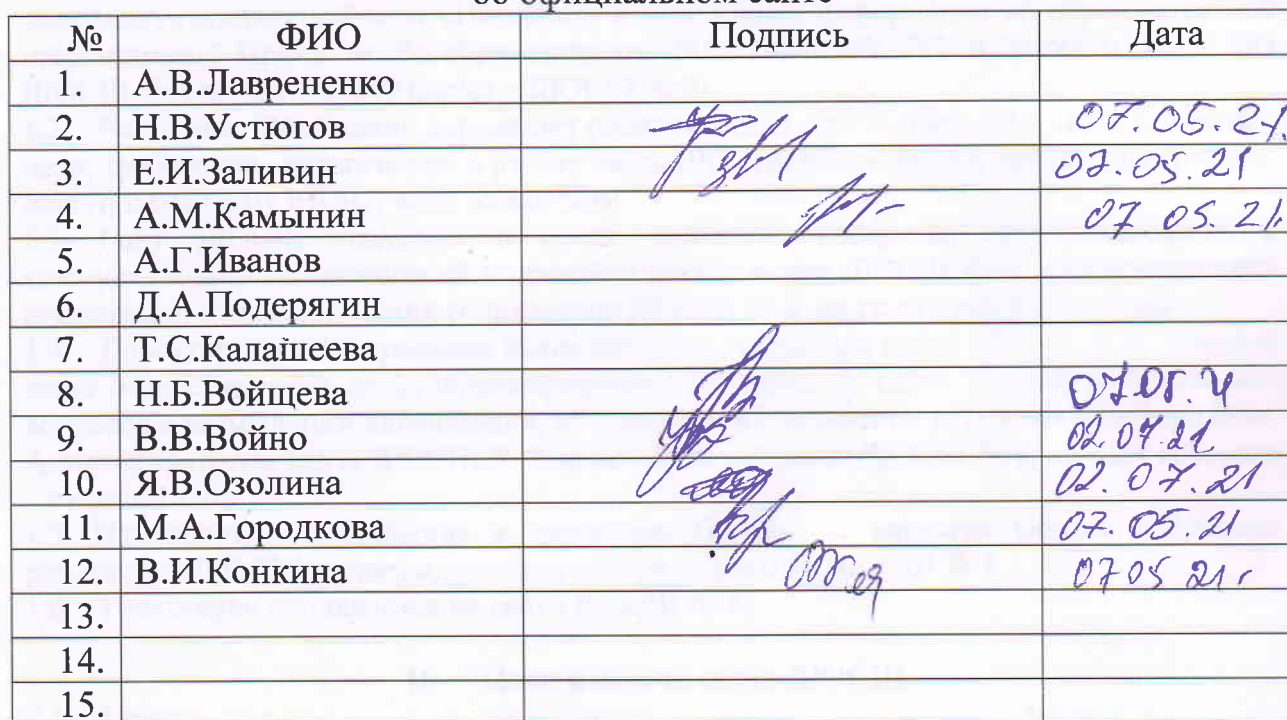 об официальном сайте
№ ФИО Подпись Дата
1. А.В.Лаврененко
2. Н.В.Устюгов 07.05.21.
3. Е.И.Заливин 07.05.21
4. А.М.Камынин 07 05.21.
5. А.Г.Иванов
6. Д.А.Подерягин
7. Т.С.Калашеева
8. Н.Б.Войщева 07.05.21
9. В.В.Войно 02.07.21
10. Я.В.Озолина 02.07.21
11. М.А.Городкова 07.05.21
12. В.И.Конкина 07 05 21г
13.
14.
15.